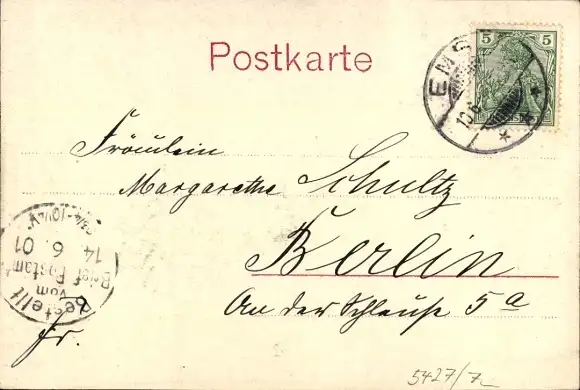 Postkarte
5 5
EMS
Fräulein
Margarethe Schultz
Berlin
An der Schleuse 5a
Bestellt
vom
Brief Postamt
14. 6. 01
fr.
5427/7